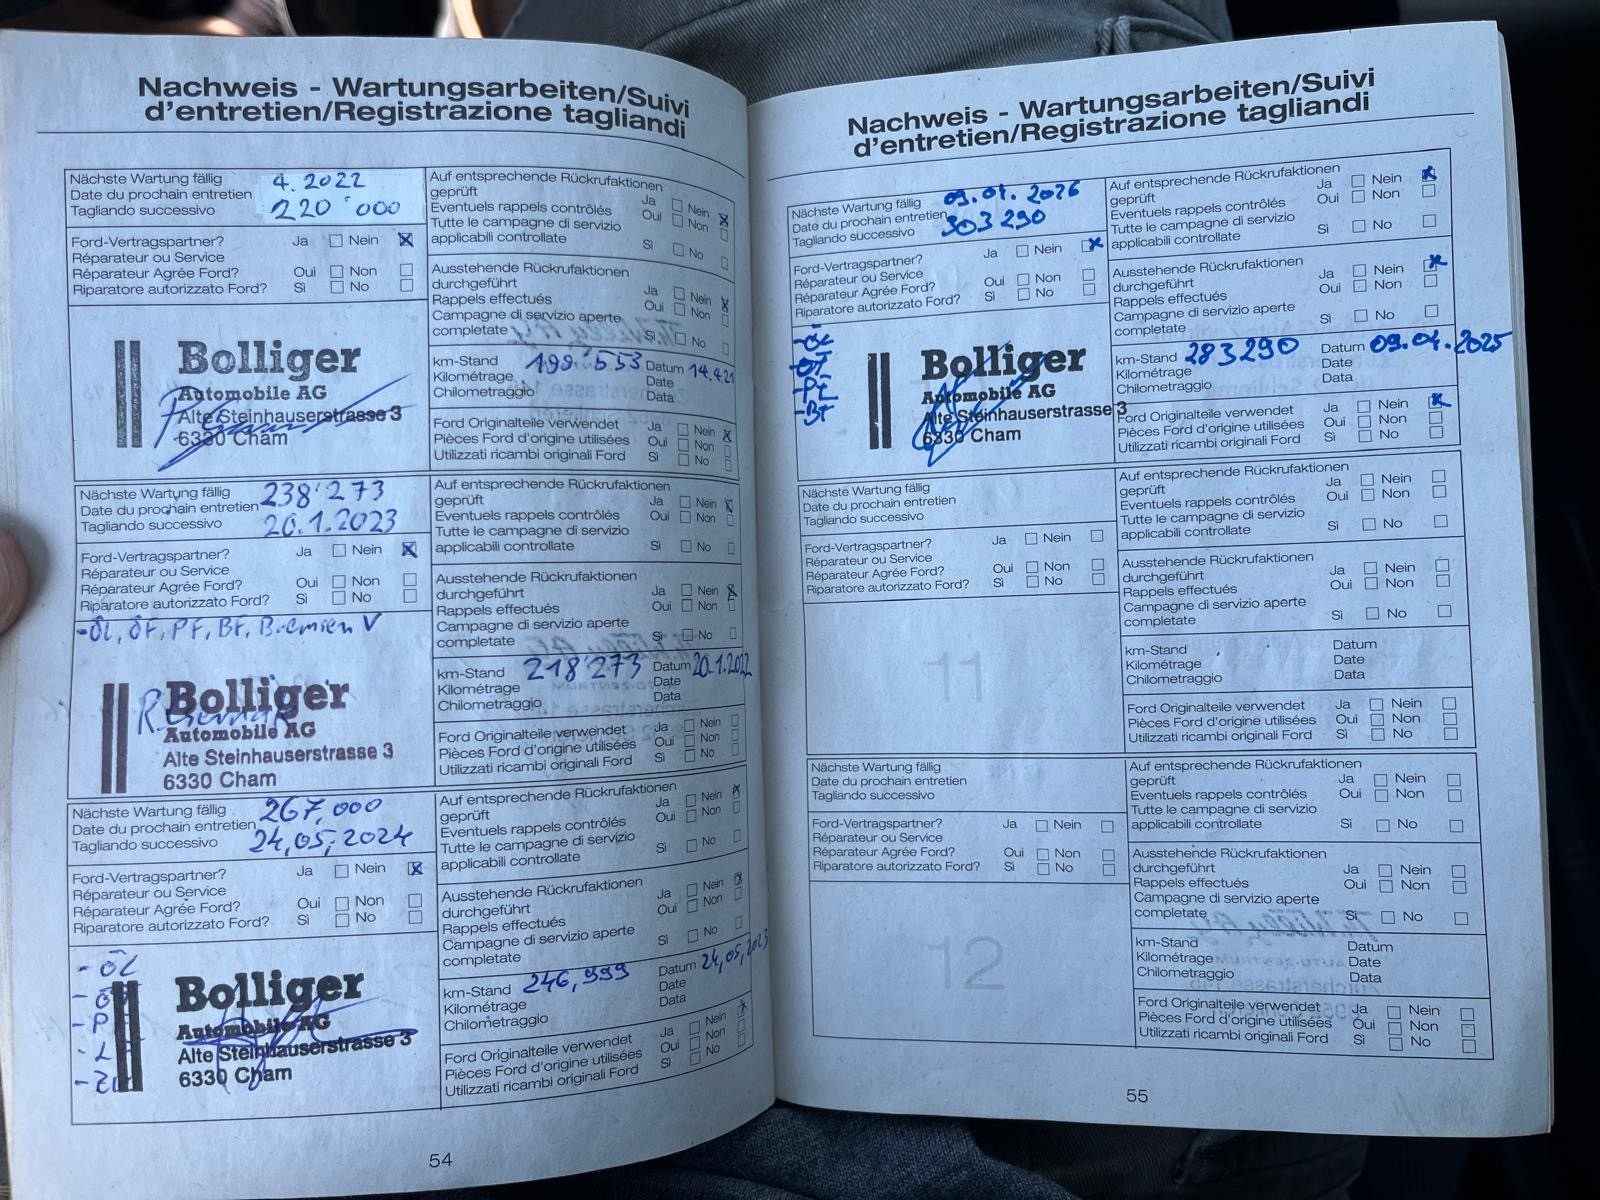 Nachweis - Wartungsarbeiten/Suivi
d'entretien/Registrazione tagliandi
Nächste Wartung fällig 4.2022
Date du prochain entretien
Tagliando successivo 220'000
Ford-Vertragspartner? Ja Nein
Réparateur ou Service
Réparateur Agrée Ford? Oui Non
Riparatore autorizzato Ford? Sì No
Bolliger
Automobile AG
Alte Steinhauserstrasse 3
6330 Cham
Auf entsprechende Rückrufaktionen
geprüft Ja Nein
Eventuels rappels contrôlés Oui Non
Tutte le campagne di servizio
applicabili controllate Sì No
Ausstehende Rückrufaktionen
durchgeführt Ja Nein
Rappels effectués Oui Non
Campagne di servizio aperte
completate Sì No
km-Stand 199'553 Datum 14.4.21
Kilométrage Date
Chilometraggio Data
Ford Originalteile verwendet Ja Nein
Pièces Ford d'origine utilisées Oui Non
Utilizzati ricambi originali Ford Sì No
Nächste Wartung fällig 238'273
Date du prochain entretien
Tagliando successivo 20.1.2023
Ford-Vertragspartner? Ja Nein
Réparateur ou Service
Réparateur Agrée Ford? Oui Non
Riparatore autorizzato Ford? Sì No
-ÖL, ÖF, PF, BF, Bremsen V
Bolliger
Automobile AG
Alte Steinhauserstrasse 3
6330 Cham
Auf entsprechende Rückrufaktionen
geprüft Ja Nein
Eventuels rappels contrôlés Oui Non
Tutte le campagne di servizio
applicabili controllate Sì No
Ausstehende Rückrufaktionen
durchgeführt Ja Nein
Rappels effectués Oui Non
Campagne di servizio aperte
completate Sì No
km-Stand 218'273 Datum 20.1.2022
Kilométrage Date
Chilometraggio Data
Ford Originalteile verwendet Ja Nein
Pièces Ford d'origine utilisées Oui Non
Utilizzati ricambi originali Ford Sì No
Nächste Wartung fällig 267,000
Date du prochain entretien
Tagliando successivo 24,05,2024
Ford-Vertragspartner? Ja Nein
Réparateur ou Service
Réparateur Agrée Ford? Oui Non
Riparatore autorizzato Ford? Sì No
- ÖL
Bolliger
Automobile AG
Alte Steinhauserstrasse 3
6330 Cham
Auf entsprechende Rückrufaktionen
geprüft Ja Nein
Eventuels rappels contrôlés Oui Non
Tutte le campagne di servizio
applicabili controllate Sì No
Ausstehende Rückrufaktionen
durchgeführt Ja Nein
Rappels effectués Oui Non
Campagne di servizio aperte
completate Sì No
km-Stand 246,999 Datum 24,05,2023
Kilométrage Date
Chilometraggio Data
Ford Originalteile verwendet Ja Nein
Pièces Ford d'origine utilisées Oui Non
Utilizzati ricambi originali Ford Sì No
54
Nachweis - Wartungsarbeiten/Suivi
d'entretien/Registrazione tagliandi
Nächste Wartung fällig 09.04.2026
Date du prochain entretien
Tagliando successivo 303290
Ford-Vertragspartner? Ja Nein
Réparateur ou Service
Réparateur Agrée Ford? Oui Non
Riparatore autorizzato Ford? Sì No
Bolliger
Automobile AG
Alte Steinhauserstrasse 3
6330 Cham
Auf entsprechende Rückrufaktionen
geprüft Ja Nein
Eventuels rappels contrôlés Oui Non
Tutte le campagne di servizio
applicabili controllate Sì No
Ausstehende Rückrufaktionen
durchgeführt Ja Nein
Rappels effectués Oui Non
Campagne di servizio aperte
completate Sì No
km-Stand 283290 Datum 09.04.2025
Kilométrage Date
Chilometraggio Data
Ford Originalteile verwendet Ja Nein
Pièces Ford d'origine utilisées Oui Non
Utilizzati ricambi originali Ford Sì No
Nächste Wartung fällig
Date du prochain entretien
Tagliando successivo
Ford-Vertragspartner? Ja Nein
Réparateur ou Service
Réparateur Agrée Ford? Oui Non
Riparatore autorizzato Ford? Sì No
11
Auf entsprechende Rückrufaktionen
geprüft Ja Nein
Eventuels rappels contrôlés Oui Non
Tutte le campagne di servizio
applicabili controllate Sì No
Ausstehende Rückrufaktionen
durchgeführt Ja Nein
Rappels effectués Oui Non
Campagne di servizio aperte
completate Sì No
km-Stand Datum
Kilométrage Date
Chilometraggio Data
Ford Originalteile verwendet Ja Nein
Pièces Ford d'origine utilisées Oui Non
Utilizzati ricambi originali Ford Sì No
Nächste Wartung fällig
Date du prochain entretien
Tagliando successivo
Ford-Vertragspartner? Ja Nein
Réparateur ou Service
Réparateur Agrée Ford? Oui Non
Riparatore autorizzato Ford? Sì No
12
Auf entsprechende Rückrufaktionen
geprüft Ja Nein
Eventuels rappels contrôlés Oui Non
Tutte le campagne di servizio
applicabili controllate Sì No
Ausstehende Rückrufaktionen
durchgeführt Ja Nein
Rappels effectués Oui Non
Campagne di servizio aperte
completate Sì No
km-Stand Datum
Kilométrage Date
Chilometraggio Data
Ford Originalteile verwendet Ja Nein
Pièces Ford d'origine utilisées Oui Non
Utilizzati ricambi originali Ford Sì No
55